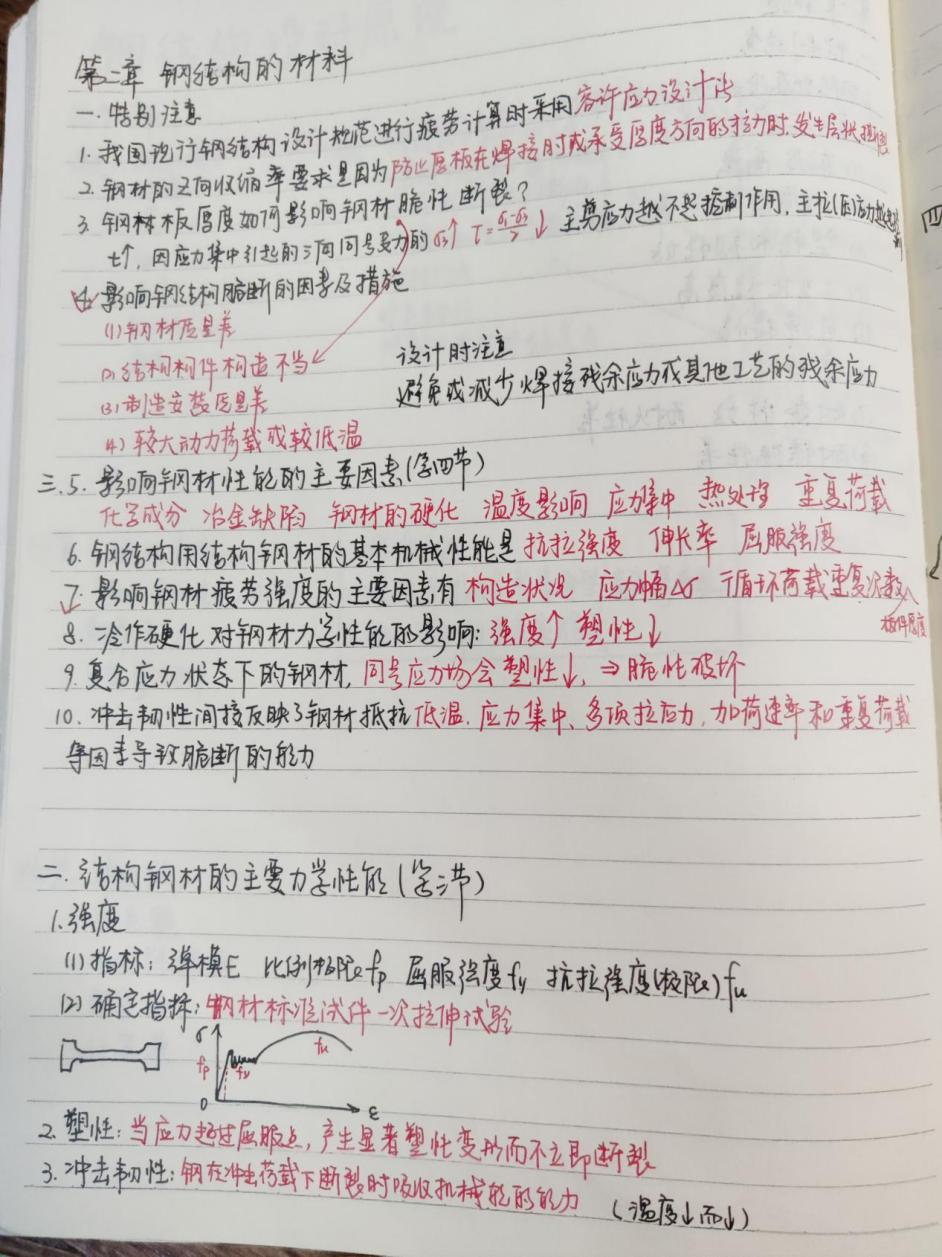 第二章 钢结构的材料
一. 特别注意
1. 我国现行钢结构设计规范进行疲劳计算时采用容许应力设计法
2. 钢材的Z向收缩率要求是因为防止厚板在焊接时或承受厚度方向的拉力时发生层状撕裂
3. 钢材板厚度如何影响钢材脆性断裂?
t↑, 因应力集中引起的三向同号受力的σ₃↑ τ=(σ₁-σ₃)/2↓ 主剪应力越不起控制作用, 主拉(压)应力
4. 影响钢结构脆断的因素及措施
(1) 钢材质量差
(2) 结构构件构造不当
设计时注意
避免或减少焊接残余应力或其他工艺的残余应力
(3) 制造安装质量差
(4) 较大动力荷载或较低温
三.5. 影响钢材性能的主要因素(第四节)
化学成分 冶金缺陷 钢材的硬化 温度影响 应力集中 热处理 重复荷载
6. 钢结构用结构钢材的基本机械性能是 抗拉强度 伸长率 屈服强度
7. 影响钢材疲劳强度的主要因素有 构造状况 应力幅Δσ 循环荷载重复次数
板件厚度
8. 冷作硬化对钢材力学性能的影响: 强度↑ 塑性↓
9. 复合应力状态下的钢材, 同号应力场会塑性↓, ⇒脆性破坏
10. 冲击韧性间接反映了钢材抵抗低温. 应力集中、多项拉应力, 加荷速率和重复荷载
等因素导致脆断的能力
二. 结构钢材的主要力学性能(第三节)
1. 强度
(1) 指标: 弹模E 比例极限fp 屈服强度fy 抗拉强度(极限)fu
(2) 确定指标: 钢材标准试件一次拉伸试验
σ fp fy fu
0 ε
2. 塑性: 当应力超过屈服点, 产生显著塑性变形而不立即断裂
3. 冲击韧性: 钢在冲击荷载下断裂时吸收机械能的能力 (温度↓而↓)
四